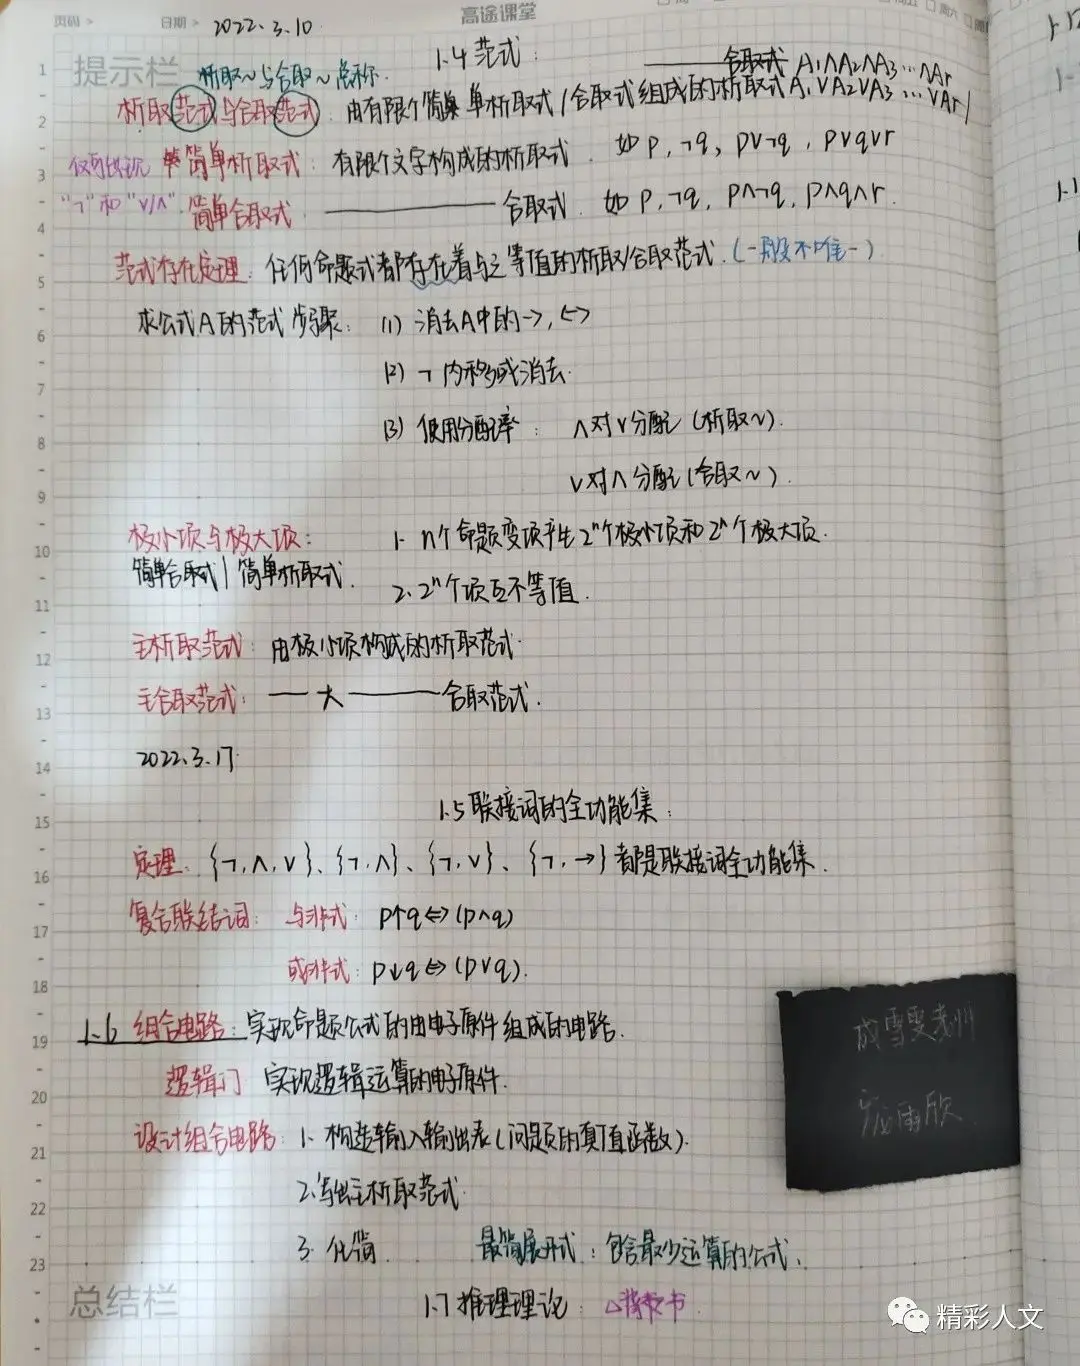 页码 >
日期 > 2022.3.10
高途课堂
提示栏
析取~与合取~总称.
1.4 范式:
———合取式 A₁∧A₂∧A₃…∧Ar
析取范式与合取范式: 由有限个简单析取式/合取式组成的析取式A₁∨A₂∨A₃…∨Ar/
简单析取式: 有限个文字构成的析取式. 如 p, ¬q, p∨¬q, p∨q∨r
"¬"和"∨/∧". 简单合取式 ——— 合取式. 如 p, ¬q, p∧¬q, p∧q∧r.
范式存在定理: 任何命题式都存在着与之等值的析取/合取范式.(一般不唯一)
求公式A的范式步骤: (1) 消去A中的→, ↔
(2) ¬内移或消去.
(3) 使用分配率: ∧对∨分配(析取~).
∨对∧分配(合取~).
极小项与极大项: 1. n个命题变项产生2ⁿ个极小项和2ⁿ个极大项.
简单合取式/简单析取式. 2. 2ⁿ个项互不等值.
主析取范式: 由极小项构成的析取范式.
主合取范式: — 大 ——— 合取范式.
2022.3.17
1.5 联接词的全功能集:
定理: {¬,∧,∨}、{¬,∧}、{¬,∨}、{¬,→}都是联接词全功能集.
复合联结词: 与非式: p↑q⇔(p∧q)
或非式: p↓q⇔(p∨q).
1.6 组合电路: 实现命题公式的由电子原件组成的电路.
逻辑门 实现逻辑运算的电子原件.
设计组合电路: 1. 构造输入输出表(问题的真值函数).
2. 写出主析取范式.
3. 化简. 最简展开式: 包含最少运算的公式.
1.7 推理理论:
总结栏
1
2
3
4
5
6
7
8
9
10
11
12
13
14
15
16
17
18
19
20
21
22
23
精彩人文